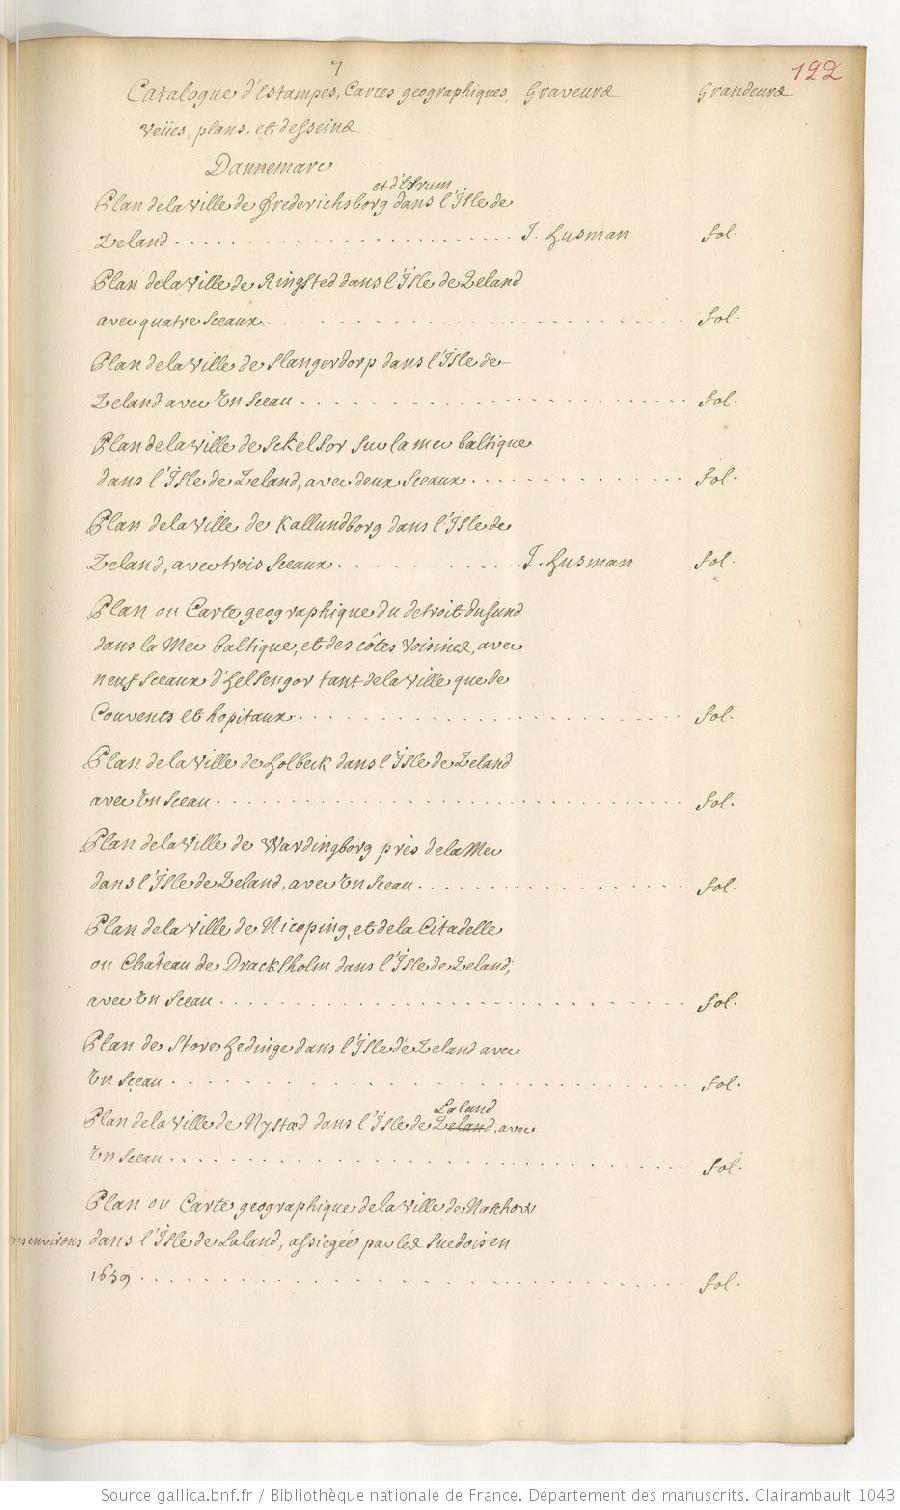 7
122
Catalogue d'Estampes, Cartes geographiques, Graveurs Grandeurs
veües, plans, et desseins
Dannemarc
et d'Ebrum
Plan de la Ville de Frederichsborg dans l'Isle de
Zeland . . . . . . . . . . . . . . . . . . . . . . . . J. Husman fol.
Plan de la Ville de Ringsted dans l'Isle de Zeland
avec quatre sceaux . . . . . . . . . . . . . . . . . . . fol.
Plan de la Ville de Slangerdorp dans l'Isle de
Zeland avec Un sceau . . . . . . . . . . . . . . . . . . . fol.
Plan de la Ville de Sckelsor sur la mer baltique
dans l'Isle de Zeland, avec deux sceaux . . . . . . . . . . . fol.
Plan de la Ville de Kallundborg dans l'Isle de
Zeland, avec trois sceaux . . . . . . . . . . J. Husman fol.
Plan ou Carte geographique du detroit du Sund
dans la Mer baltique, et des côtes voisines, avec
neuf sceaux d'Helsengor tant de la Ville que de
Couvents et hopitaux . . . . . . . . . . . . . . . . . . . fol.
Plan de la Ville de Holbeck dans l'Isle de Zeland
avec Un sceau . . . . . . . . . . . . . . . . . . . . . . . fol.
Plan de la Ville de Wardingborg près de la Mer
dans l'Isle de Zeland, avec Un sceau . . . . . . . . . . . . fol.
Plan de la Ville de Nicoping, et de la Citadelle
ou Château de Dracksholm dans l'Isle de Zeland,
avec Un sceau . . . . . . . . . . . . . . . . . . . . . . . fol.
Plan de Store Hedinge dans l'Isle de Zeland avec
Un sceau . . . . . . . . . . . . . . . . . . . . . . . . . fol.
Laland
Plan de la Ville de Nystad dans l'Isle de Zeland, avec
Un sceau . . . . . . . . . . . . . . . . . . . . . . . . . fol.
Plan ou Carte geographique de la Ville de Nakhow
environs dans l'Isle de Laland, assiegée par les Suedois en
1659 . . . . . . . . . . . . . . . . . . . . . . . . . . . fol.
Source gallica.bnf.fr / Bibliothèque nationale de France. Département des manuscrits. Clairambault 1043